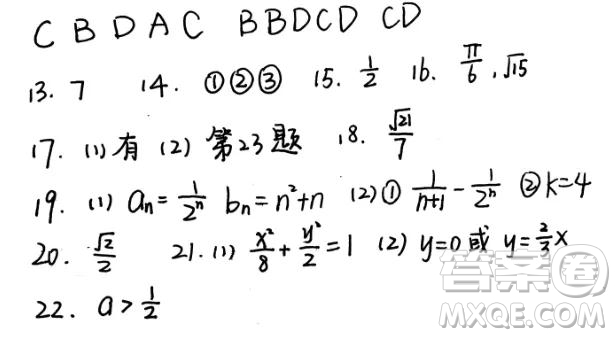 C B D A C B B D C D C D
13. 7 14. ①②③ 15. 1/2 16. π/6, √15
17. (1) 有 (2) 第23题 18. √21/7
19. (1) aₙ = 1/2ⁿ bₙ = n² + n (2) ① 1/(n+1) - 1/2ⁿ ② k = 4
20. √2/2 21. (1) x²/8 + y²/2 = 1 (2) y = 0 或 y = 2/3 x
22. a > 1/2
答案圈
MXQE.COM